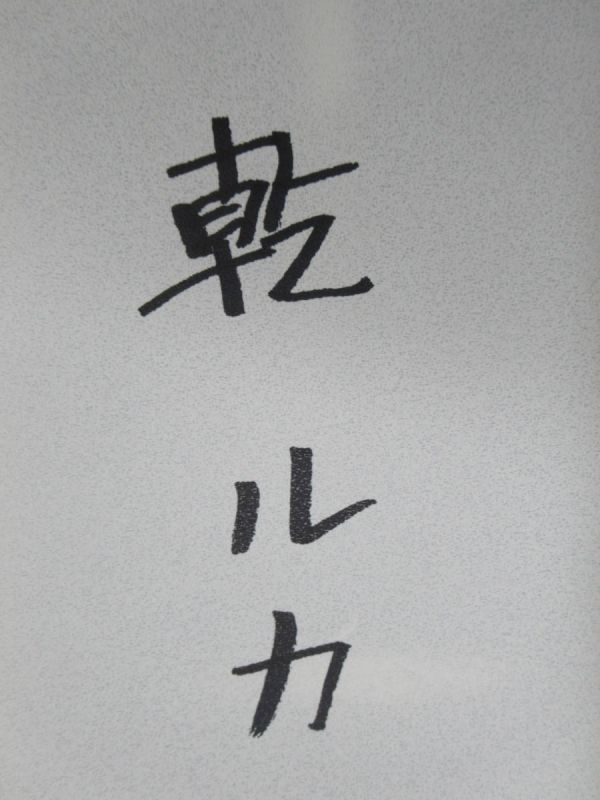 乾ルカ